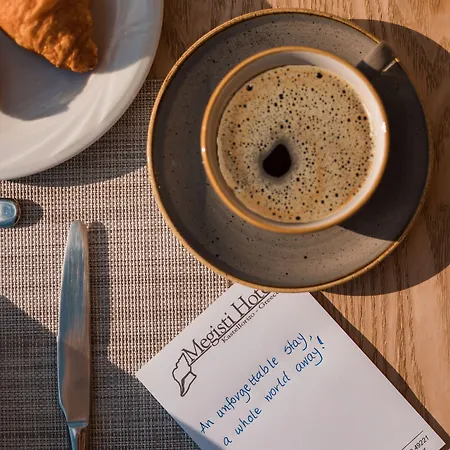 Megisti Hot
Kastellorizo - Greece
An unforgettable stay,
a whole world away!
49221